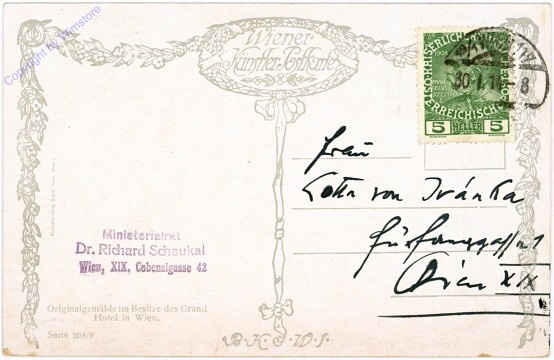 Copyright by Wimstore
Wiener
Künstler-Postkarte
1908
KAISERLICHE KÖNIGLICHE
ÖSTERREICHISCHE
5 HELLER 5
WIEN
30. I. 8
Frau
Lotte von Ivánka
Wien XIX
Ministerialrat
Dr. Richard Schaukal
Wien, XIX, Cobenzlgasse 42
Originalgemälde im Besitze des Grand
Hotel in Wien.
Serie 208/8
B.K.W.I.